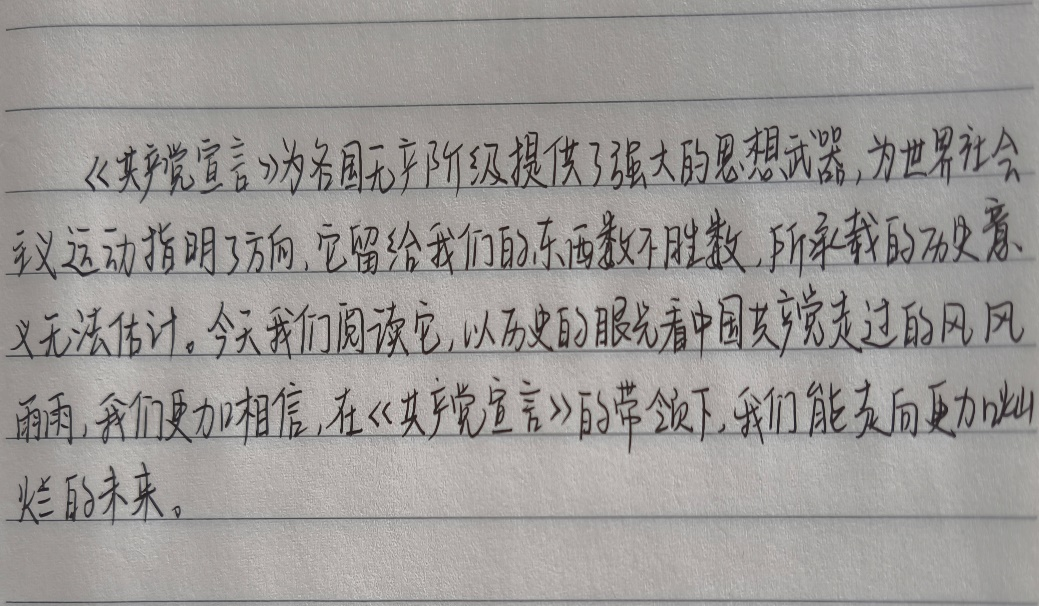 《共产党宣言》为各国无产阶级提供了强大的思想武器,为世界社会
主义运动指明了方向,它留给我们的东西数不胜数,所承载的历史意
义无法估计。今天我们阅读它,以历史的眼光看中国共产党走过的风风
雨雨,我们更加相信,在《共产党宣言》的带领下,我们能走向更加灿
烂的未来。